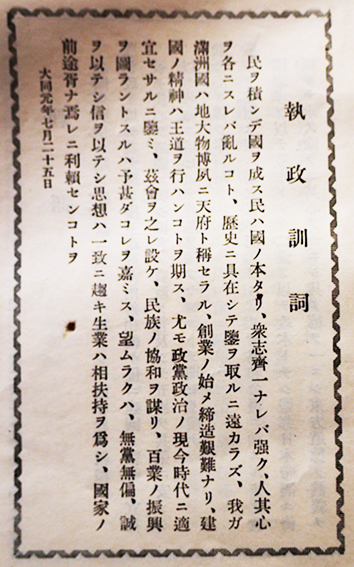 執政訓詞
民ヲ積ンデ國ヲ成ス民ハ國ノ本タリ、衆志齊一ナレバ强ク、人其心
ヲ各ニスレバ亂ルコト、歷史ニ具在シテ鑒ヲ取ルニ遠カラズ、我ガ
滿洲國ハ地大物博夙ニ天府ト稱セラル、創業ノ始メ締造艱難ナリ、建
國ノ精神ハ王道ヲ行ハンコトヲ期ス、尤モ政黨政治ノ現今時代ニ適
宜セサルニ鑒ミ、茲會ヲ之レ設ケ、民族ノ協和ヲ謀リ、百業ノ振興
ヲ圖ラントスルハ予甚ダコレヲ嘉ミス、望ムラクハ、無黨無偏、誠
ヲ以テシ信ヲ以テシ思想ハ一致ニ趨キ生業ハ相扶持ヲ爲シ、國家ノ
前途胥ナ焉レニ利賴センコトヲ
大同元年七月二十五日